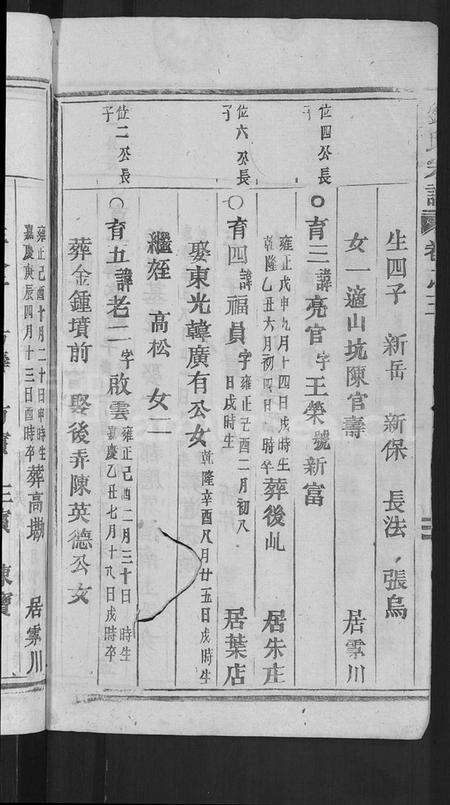 氏宗譜 卷之三
生四子 新岳 新保 長法 張烏
女一適山坑陳官壽 居雩川
位四公長子
育三 諱亮官 字王榮 號新富
雍正戊申九月十四日戌時生
乾隆乙丑六月初四日 時卒
葬後山 居朱庄
位六公長子
育四 諱福員 字
雍正 丑酉二月初八日戌時生
居葉店
娶東光韓廣有公女 乾隆辛酉八月廿五日戌時生
繼姪 高松 女二
位二公長子
育五 諱老二 字啟雲
雍正己酉二月三十日 時生
嘉慶乙丑七月十八日戌時卒
葬金鍾墳前 娶後弄陳英德公女
雍正己酉十月二十日申時生
嘉慶庚辰四月十三日酉時卒
葬高墈 居雩川